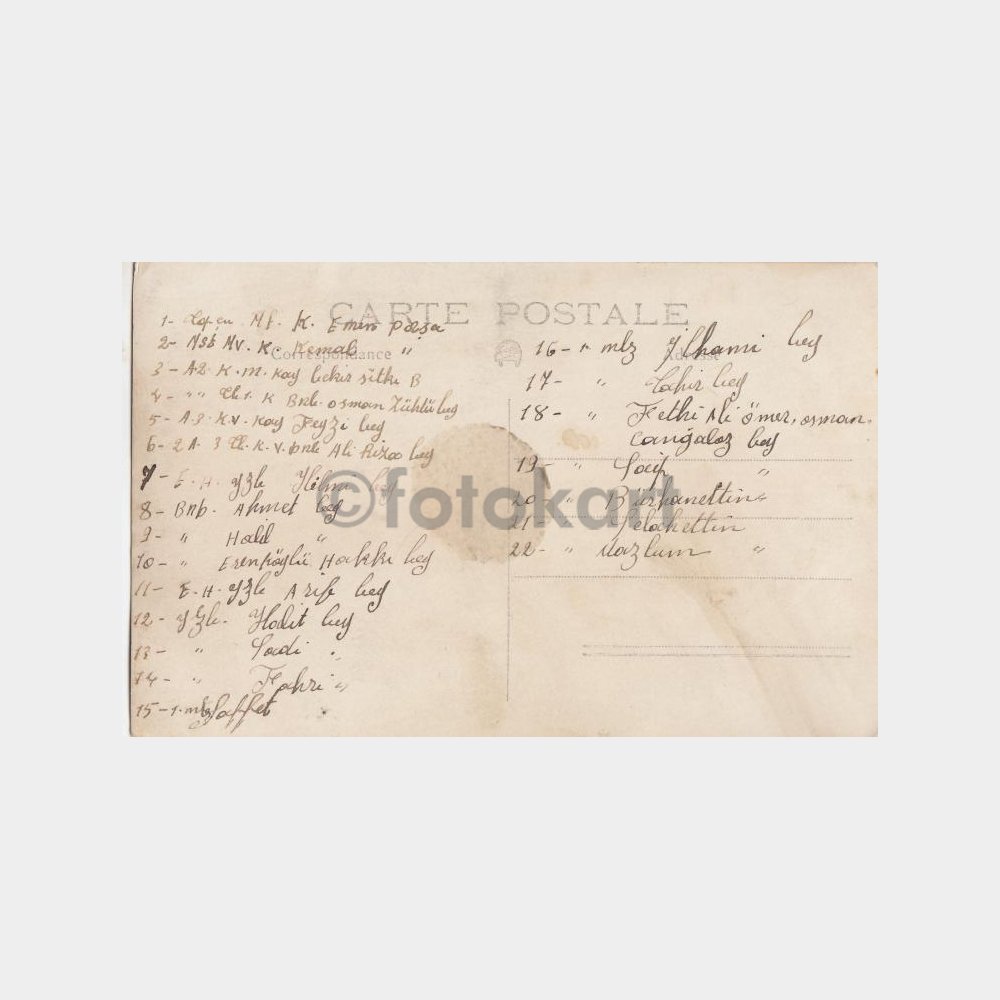 CARTE POSTALE
Correspondance
Adresse
1- Mf. K. Emin paşa
2- Mst Mv. K. Kemal "
3- A2. K. M. Kay bekir sitki B
4- " " K Bnb. osman Zühtü bey
5- A3. K.V. Kay Feyzi bey
6- 2 A. 3 K.V. bnb Ali Riza bey
7- E.H. Yzb Hilmi bey
8- Bnb. Ahmet bey
9- " Halil "
10- " Erenköylü Hakkı bey
11- E.H. Yzb Arif bey
12- Yzb. Halit bey
13- " Sadi "
14- " Fahri "
15- 1.mlz Saffet
16- 1. mlz Ilhami bey
17- " Tahir bey
18- " Fethi Ali ömer, osman.
cangaloz bey
19- " Saip "
20- " Bürhanettin "
21- Selahettin
22- " Mazlum "
©fotokart